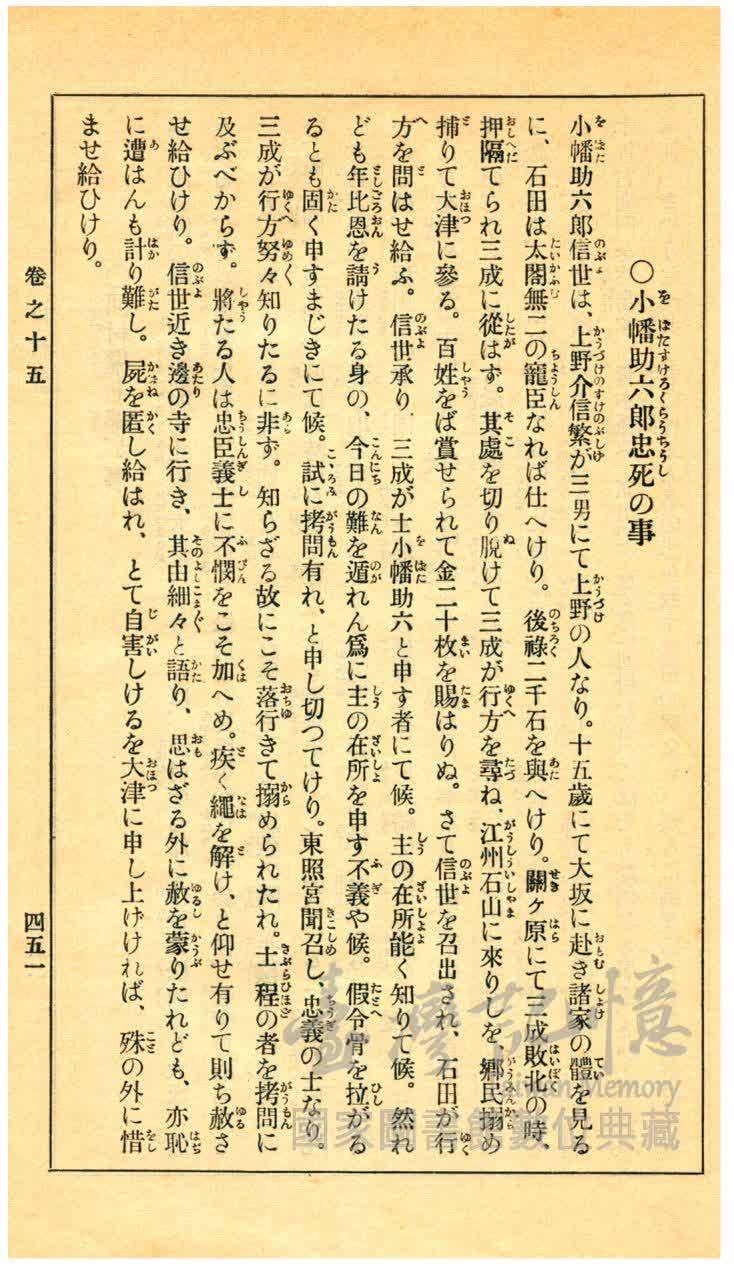 ○小幡助六郎忠死の事
小幡助六郎信世は、上野介信繁が三男にて上野の人なり。十五歳にて大坂に赴き諸家の體を見る
に、石田は太閤無二の寵臣なれば仕へけり。後祿二千石を與へけり。關ヶ原にて三成敗北の時、
押隔てられ三成に從はず。其處を切り脫けて三成が行方を尋ね、江州石山に來りしを、鄕民搦め
捕りて大津に參る。百姓をば賞せられて金二十枚を賜はりぬ。さて信世を召出され、石田が行
方を問はせ給ふ。信世承り、三成が士小幡助六と申す者にて候。主の在所能く知りて候。然れ
ども年比恩を請けたる身の、今日の難を遁れん爲に主の在所を申す不義や候。假令骨を拉がる
るとも固く申すまじきにて候。試に拷問有れ、と申し切つてけり。東照宮聞召し、忠義の士なり。
三成が行方努々知りたるに非ず。知らざる故にこそ落行きて搦められたれ。士程の者を拷問に
及ぶべからず。將たる人は忠臣義士に不憫をこそ加へめ。疾く繩を解け、と仰せ有りて則ち赦さ
せ給ひけり。信世近き邊の寺に行き、其由細々と語り、思はざる外に赦を蒙りたれども、亦恥
に遭はんも計り難し。屍を匿し給はれ、とて自害しけるを大津に申し上げければ、殊の外に惜
ませ給ひけり。
卷之十五
四五一
臺灣記憶
Taiwan Memory
國家圖書館數位典藏